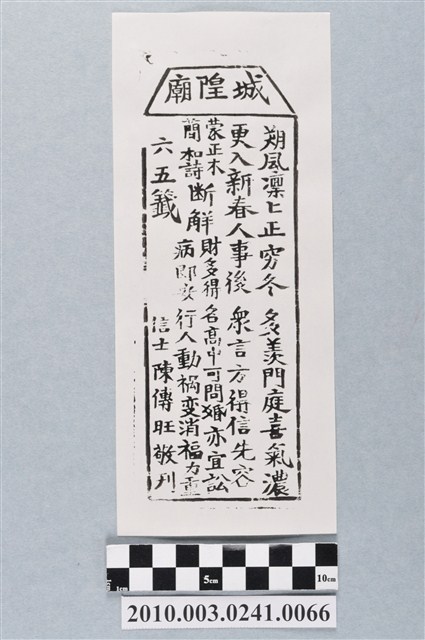 城隍廟
朔風凜匕正穷冬　多羨門庭喜氣濃
更入新春人事後　衆言方得信先容
蒙正木
蘭和詩
断解
財多得名高中可問婚亦宜訟
病即安行人動禍变消福力重
六五籤
信士陳傳旺敬刋
1cm 5cm 10cm
2010.003.0241.0066